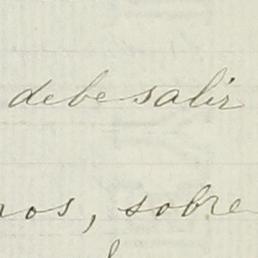 debe salir
nos, sobre